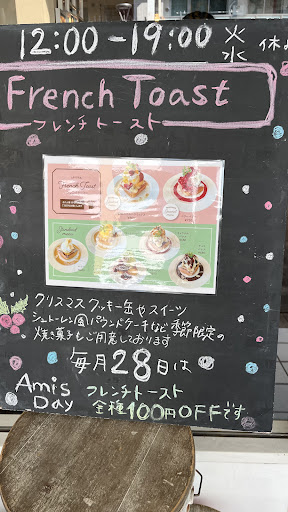 12:00-19:00 火
水 休み
French Toast
フレンチトースト
French Toast
クリスマスクッキー缶やスイーツ
シュトーレン風パウンドケーキなど季節限定の
焼き菓子もご用意しております
毎月28日は
Amis フレンチトースト
Day 全種100円OFFです